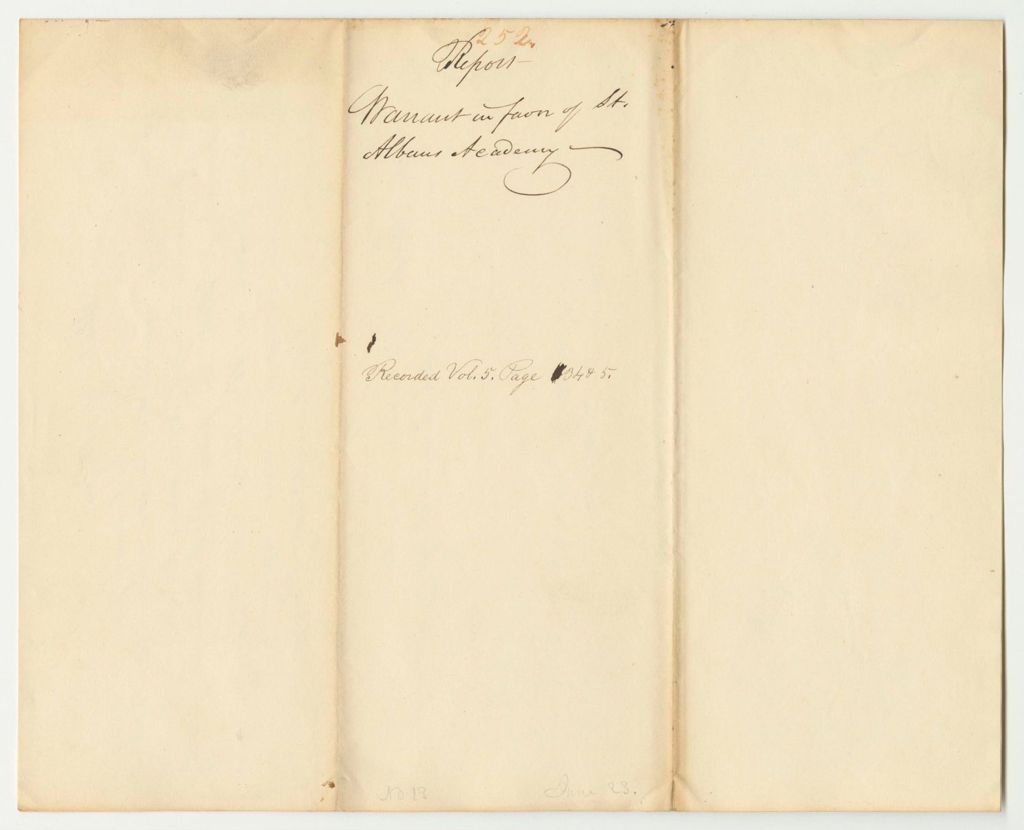 252.
Report
Warrant in favor of St.
Albans Academy
Recorded Vol. 5. Page 34 & 5.
No 13
June 23.